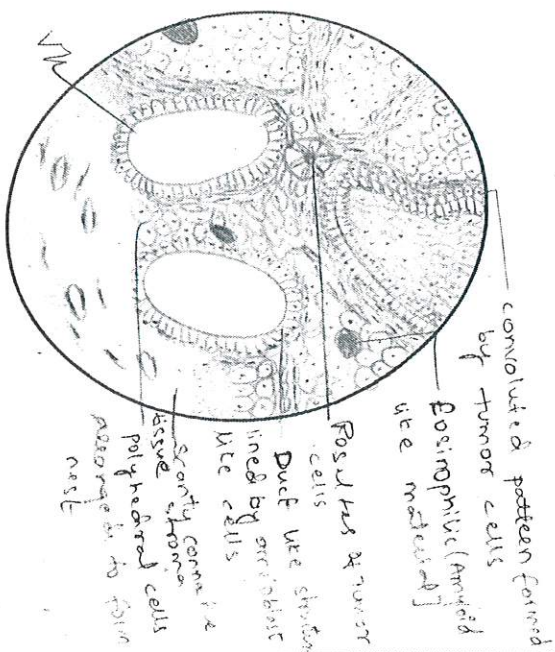 convoluted pattern formed
by tumor cells
Eosinophilic (Amyloid
like material)
of tumor
cells
Duct like
lined by
like cells
scanty
tissue stroma
polyhedral cells
arranged to form
nest